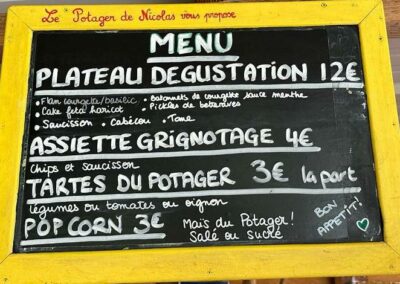 Le Potager de Nicolas vous propose
MENU
PLATEAU DEGUSTATION 12€
• Flan courgette/basilic • Batonnets de courgette sauce menthe
• Cake feta haricot • Pickles de betteraves
• Saucisson • Cabécou • Tome
ASSIETTE GRIGNOTAGE 4€
Chips et saucisson
TARTES DU POTAGER 3€ la part
légumes ou tomates ou oignon
POP CORN 3€ Maïs du Potager!
Salé ou sucré
BON APPETIT!